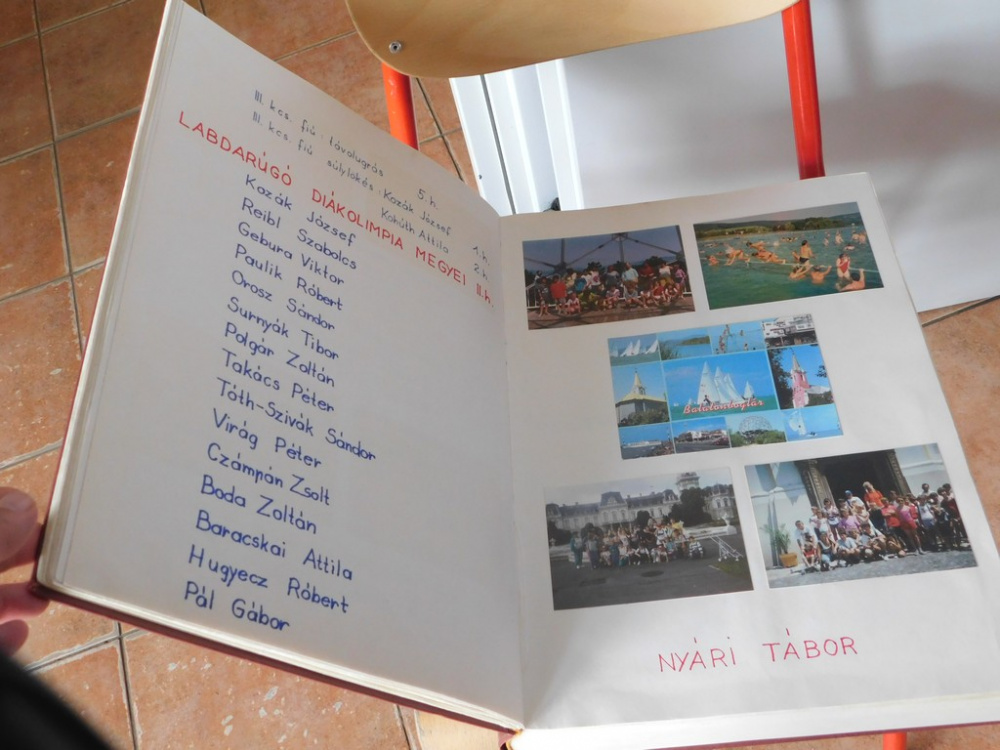 III. kcs. fiú távolugrás 5. h.
III. kcs. fiú súlylökés: Kozák József 1. h.
Kohúth Attila 2. h.
LABDARÚGÓ DIÁKOLIMPIA MEGYEI II. h.
Kozák József
Reibl Szabolcs
Gebura Viktor
Paulik Róbert
Orosz Sándor
Surnyák Tibor
Polgár Zoltán
Takács Péter
Tóth-Szivák Sándor
Virág Péter
Czámpán Zsolt
Boda Zoltán
Baracskai Attila
Hugyecz Róbert
Pál Gábor
Balatonboglár
NYÁRI TÁBOR